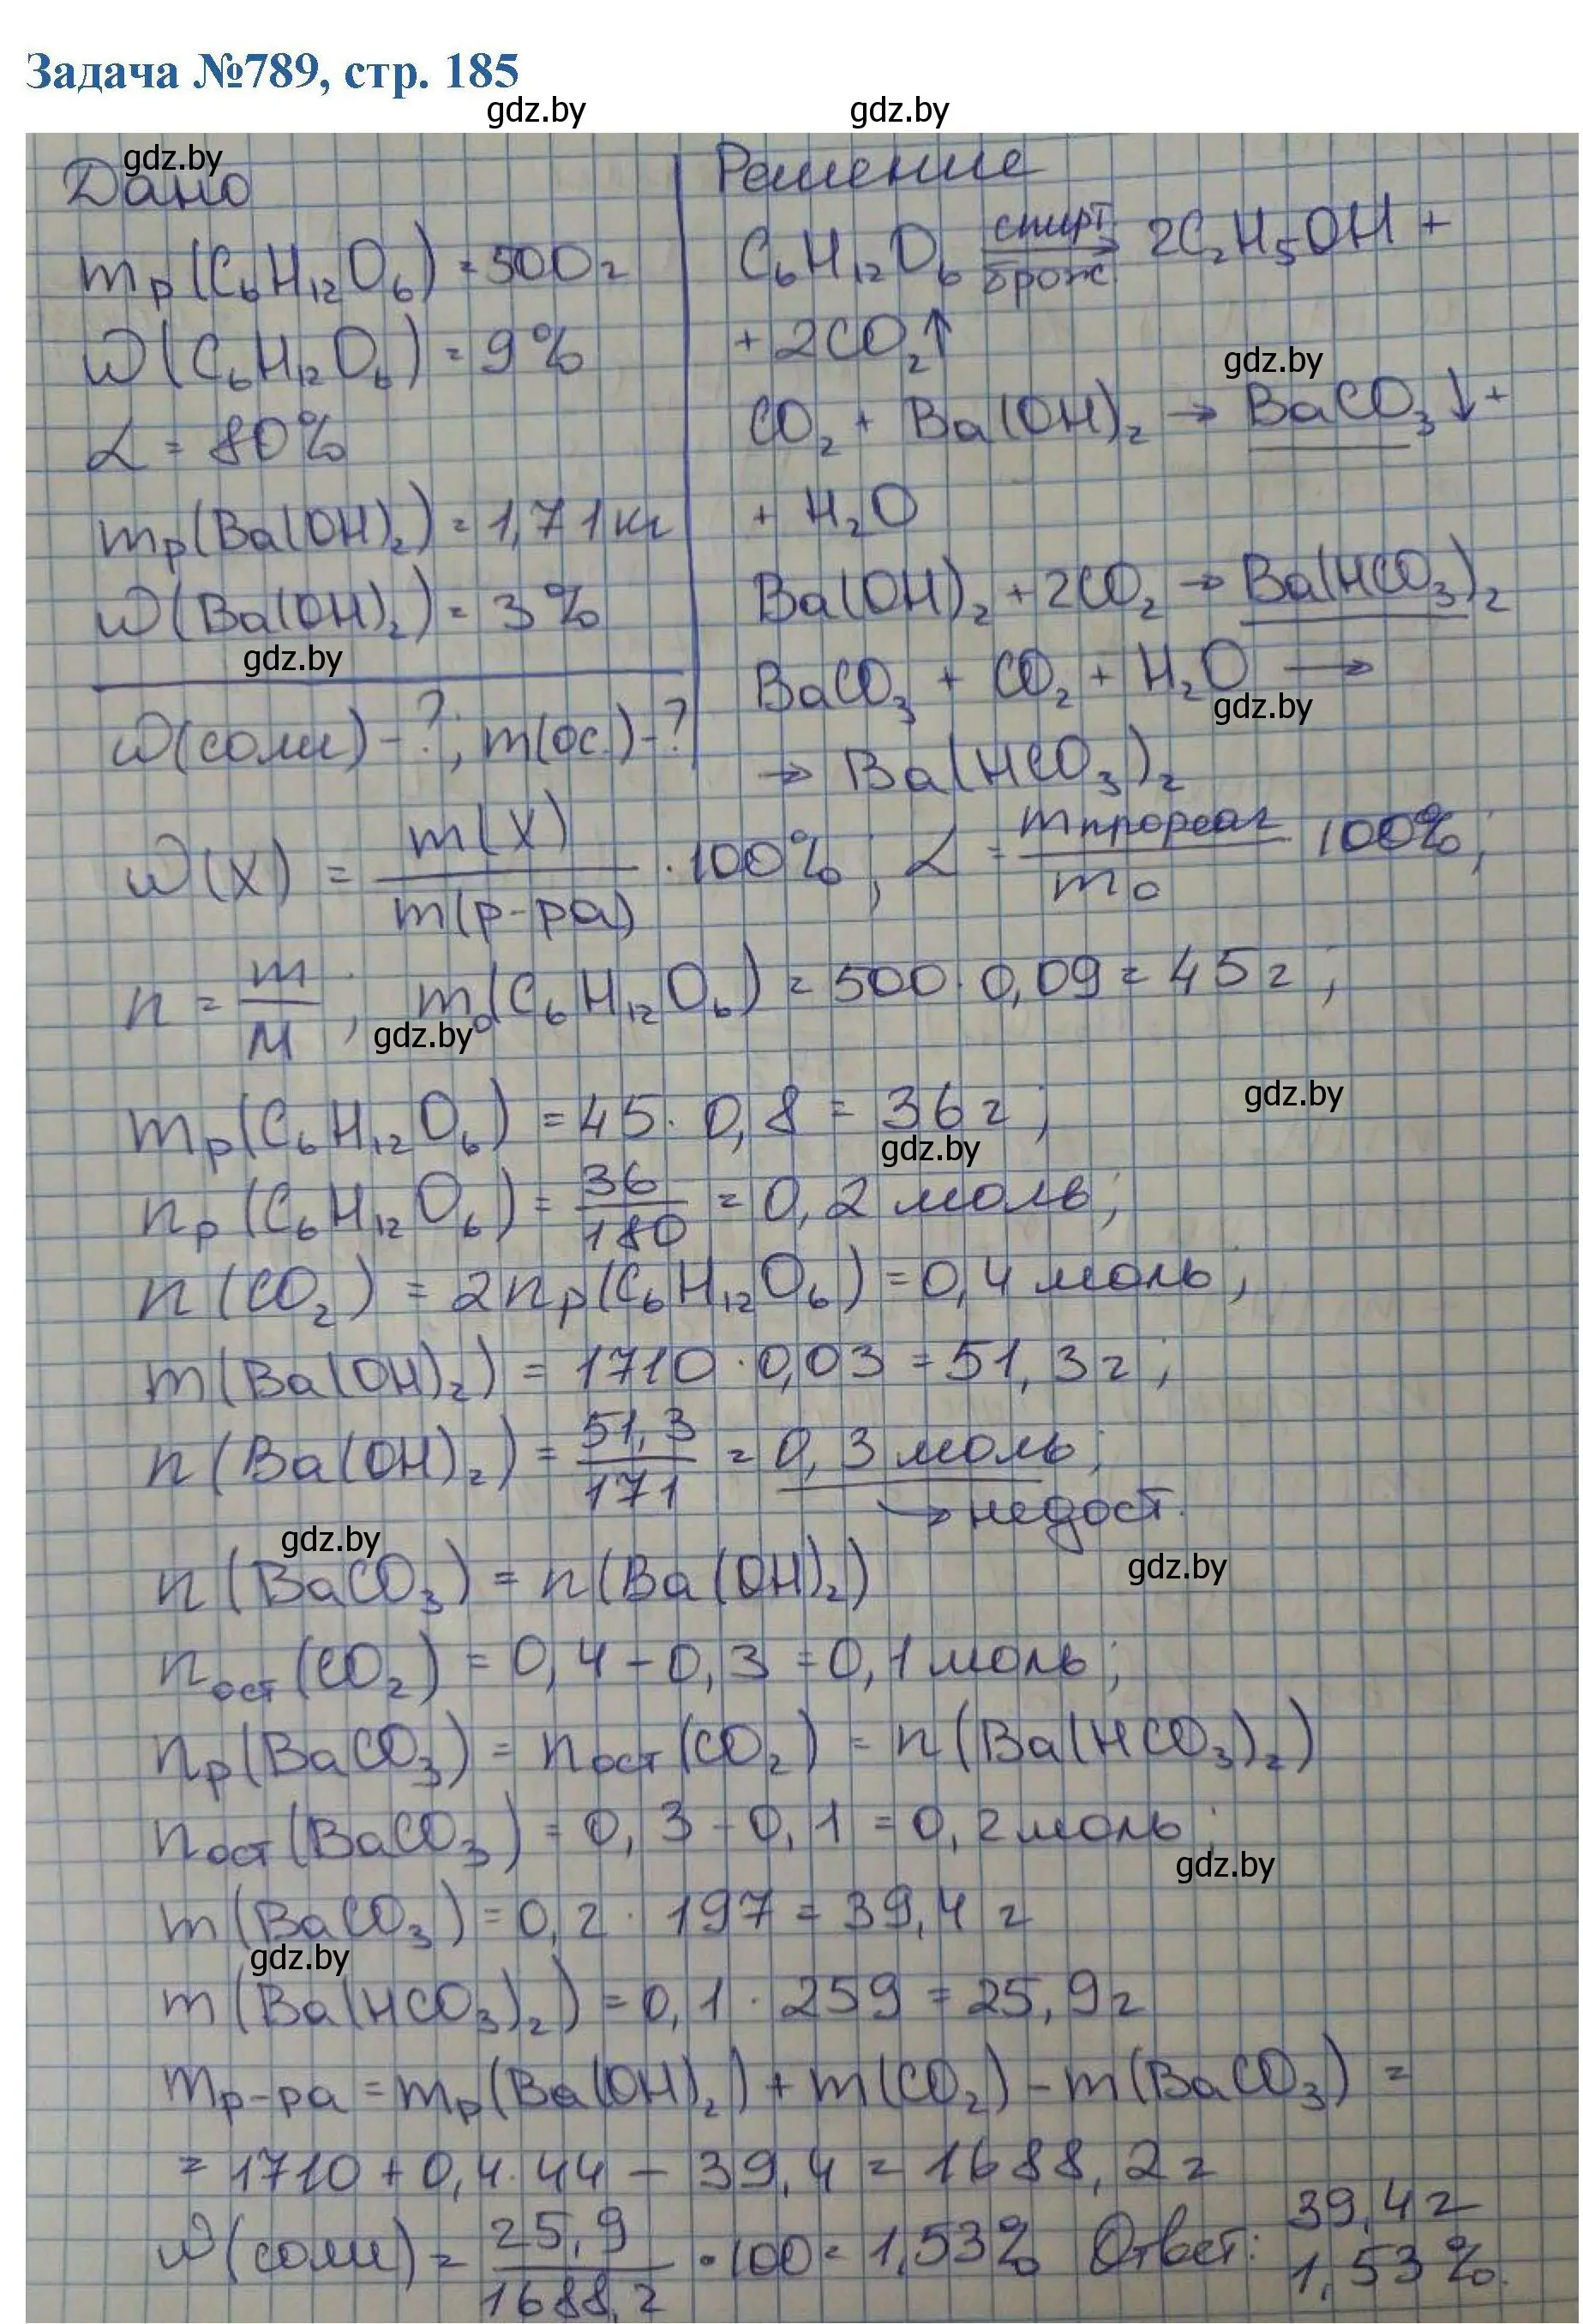 Задача №789, стр. 185
gdz.by gdz.by
gdz.by
Дано
mр(C₆H₁₂O₆) = 500г
ω(C₆H₁₂O₆) = 9%
α = 80%
mр(Ba(OH)₂) = 1,71 кг
ω(Ba(OH)₂) = 3%
gdz.by
ω(соли) - ?; m(ос.) - ?
Решение
C₆H₁₂O₆ спирт → брож. 2C₂H₅OH +
+ 2CO₂↑
gdz.by
CO₂ + Ba(OH)₂ → BaCO₃↓ +
+ H₂O
Ba(OH)₂ + 2CO₂ → Ba(HCO₃)₂
BaCO₃ + CO₂ + H₂O →
gdz.by
→ Ba(HCO₃)₂
ω(X) = m(X)/m(р-ра) · 100%; α = mпрореаг/m₀ · 100%;
n = m/M; m₀(C₆H₁₂O₆) = 500 · 0,09 = 45г;
gdz.by
gdz.by
mр(C₆H₁₂O₆) = 45 · 0,8 = 36г;
gdz.by
nр(C₆H₁₂O₆) = 36/180 = 0,2 моль;
n(CO₂) = 2nр(C₆H₁₂O₆) = 0,4 моль;
m(Ba(OH)₂) = 1710 · 0,03 = 51,3г;
n(Ba(OH)₂) = 51,3/171 = 0,3 моль;
→ недост.
gdz.by
gdz.by
n(BaCO₃) = n(Ba(OH)₂)
nост(CO₂) = 0,4 - 0,3 = 0,1 моль;
nр(BaCO₃) = nост(CO₂) = n(Ba(HCO₃)₂)
nост(BaCO₃) = 0,3 - 0,1 = 0,2 моль;
gdz.by
m(BaCO₃) = 0,2 · 197 = 39,4 г
gdz.by
m(Ba(HCO₃)₂) = 0,1 · 259 = 25,9г
mр-ра = mр(Ba(OH)₂) + m(CO₂) - m(BaCO₃) =
= 1710 + 0,4 · 44 - 39,4 = 1688,2г
ω(соли) = 25,9/1688,2 · 100 = 1,53% Ответ: 39,4г
1,53%.